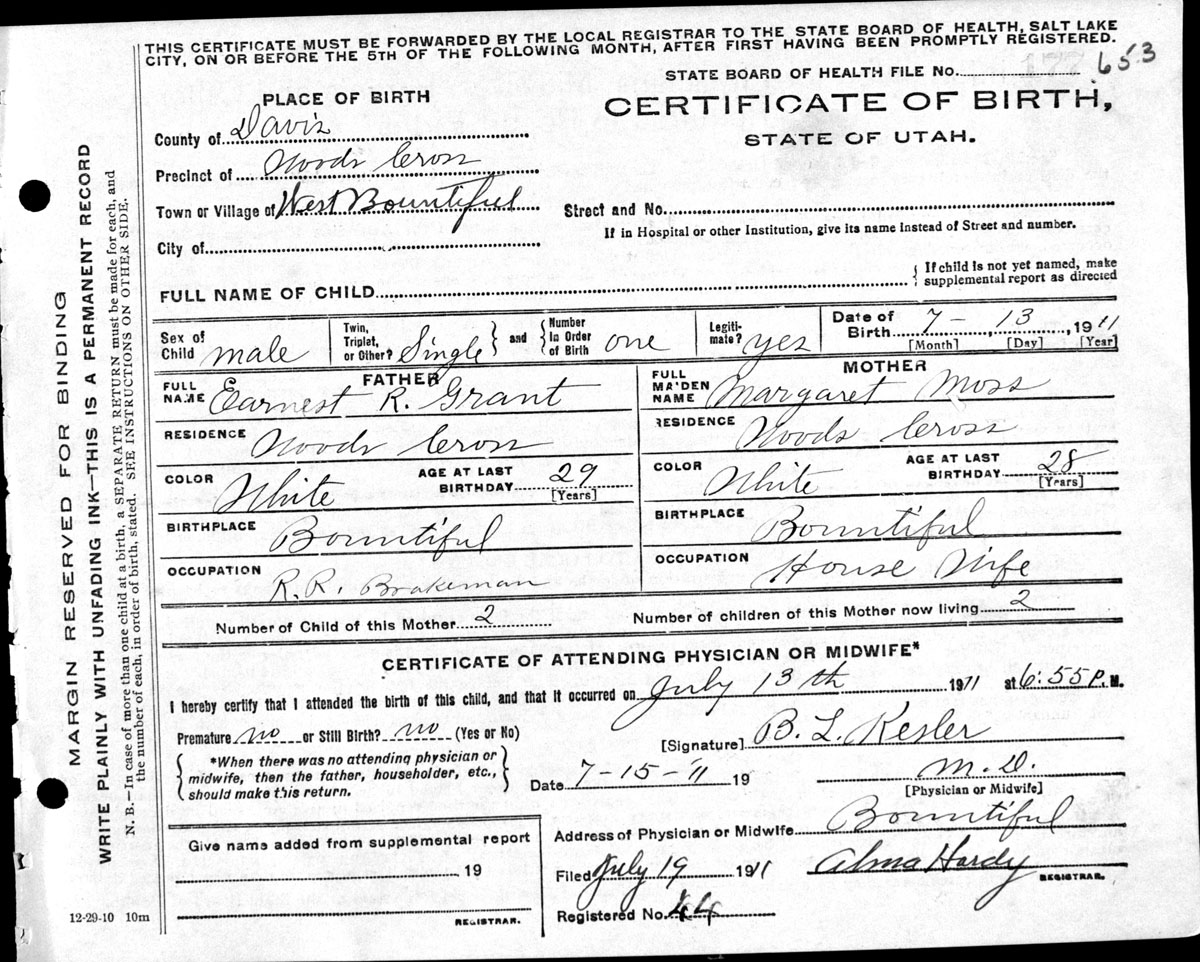 THIS CERTIFICATE MUST BE FORWARDED BY THE LOCAL REGISTRAR TO THE STATE BOARD OF HEALTH, SALT LAKE
CITY, ON OR BEFORE THE 5TH OF THE FOLLOWING MONTH, AFTER FIRST HAVING BEEN PROMPTLY REGISTERED.
STATE BOARD OF HEALTH FILE No. 177 653
PLACE OF BIRTH
CERTIFICATE OF BIRTH,
STATE OF UTAH.
County of Davis
Precinct of Woods Cross
Town or Village of West Bountiful
Street and No.
If in Hospital or other Institution, give its name instead of Street and number.
City of
FULL NAME OF CHILD
{ If child is not yet named, make
supplemental report as directed
Sex of Child male
Twin, Triplet, or Other? Single } and { Number In Order of Birth one
Legiti-mate? yes
Date of Birth 7 - , 13 , 1911
[Month] [Day] [Year]
FATHER
FULL NAME Earnest R. Grant
RESIDENCE Woods Cross
COLOR White
AGE AT LAST BIRTHDAY 29
[Years]
BIRTHPLACE Bountiful
OCCUPATION R.R. Brakeman
MOTHER
FULL MAIDEN NAME Margaret Moss
RESIDENCE Woods Cross
COLOR White
AGE AT LAST BIRTHDAY 28
[Years]
BIRTHPLACE Bountiful
OCCUPATION House Wife
Number of Child of this Mother 2
Number of children of this Mother now living 2
CERTIFICATE OF ATTENDING PHYSICIAN OR MIDWIFE*
I hereby certify that I attended the birth of this child, and that it occurred on July 13th 1911 at 6:55 P. M.
Premature no or Still Birth? no (Yes or No)
[Signature] B. L. Kesler
*When there was no attending physician or
midwife, then the father, householder, etc.,
should make this return.
Date 7-15-11 19
M.D.
[Physician or Midwife]
Address of Physician or Midwife Bountiful
Give name added from supplemental report
19
REGISTRAR.
Filed July 19 1911 Alma Hardy
REGISTRAR.
Registered No. 44
12-29-10 10m
MARGIN RESERVED FOR BINDING
WRITE PLAINLY WITH UNFADING INK—THIS IS A PERMANENT RECORD
N. B.—In case of more than one child at a birth, a SEPARATE RETURN must be made for each, and
the number of each, in order of birth, stated. SEE INSTRUCTIONS ON OTHER SIDE.